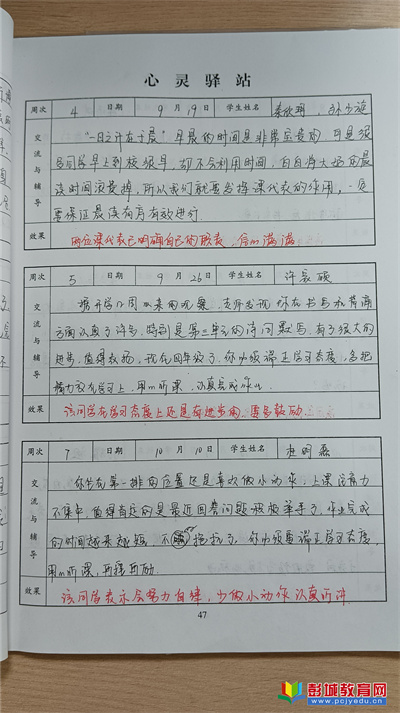 心灵驿站
周次 4 日期 9月19日 学生姓名
交流与辅导
"一日之计在于晨"早晨的时间是非常宝贵的，可是很
多同学早上到校很早，却不会利用时间，白白将大好的晨
读时间浪费掉，所以我们就要发挥课代表的作用，一定
要保证晨读有序有效进行
效果 两位课代表已明确自己的职责，信心满满
周次 5 日期 9月26日 学生姓名 许宸硕
交流与辅导
据开学几周以来的观察，老师发现你在书写和背诵
方面认真了许多，特别是第三单元的诗词默写，有了很大的
进步，值得表扬，现在四年级了，你必须端正学习态度，多把
精力放在学习上，用心听课，认真完成作业
效果 该同学在学习态度上还是有进步的，要多鼓励
周次 7 日期 10月10日 学生姓名
交流与辅导
你坐在第一排的位置还是喜欢做小动作，上课注意力
不集中，值得肯定的是最近回答问题积极举手了，作业完成
的时间越来越短，不拖拉了，你必须要端正学习态度，
用心听课，再接再励
效果 该同学表示会努力自律，少做小动作认真听讲
47
彭城教育网
www.pcjyedu.cn